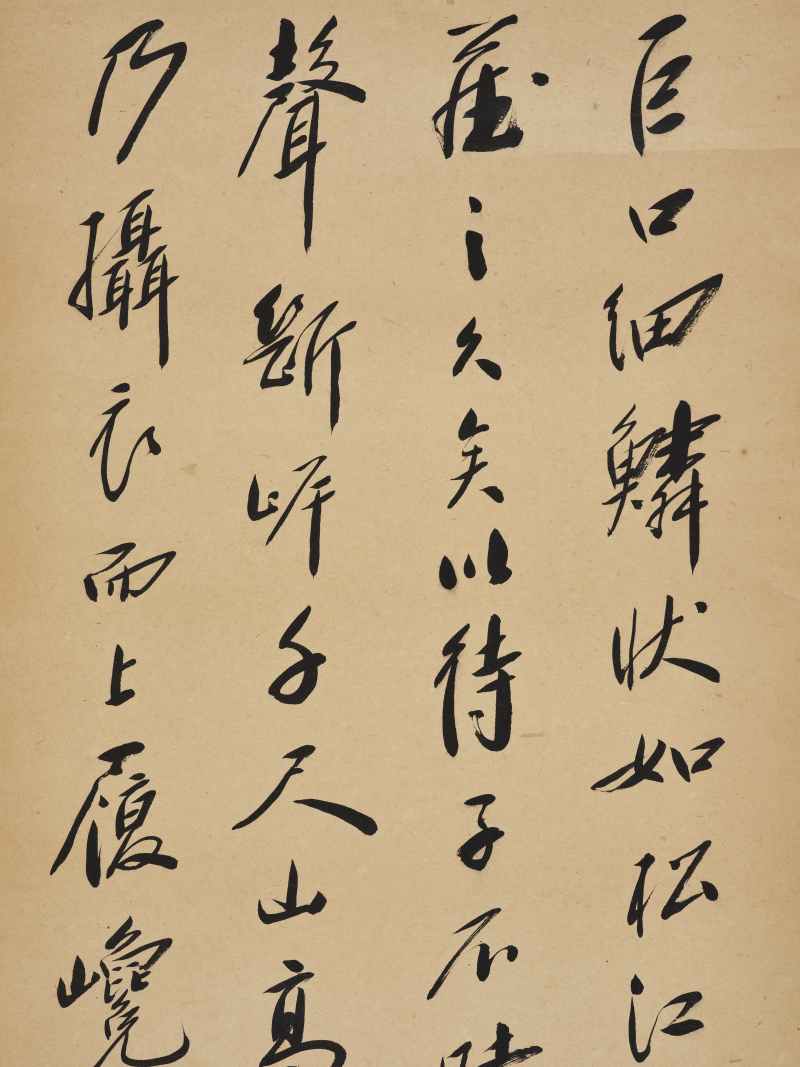 巨口細鱗狀如松江
藏之久矣以待子不時
聲斷岸千尺山高
乃攝衣而上履巉